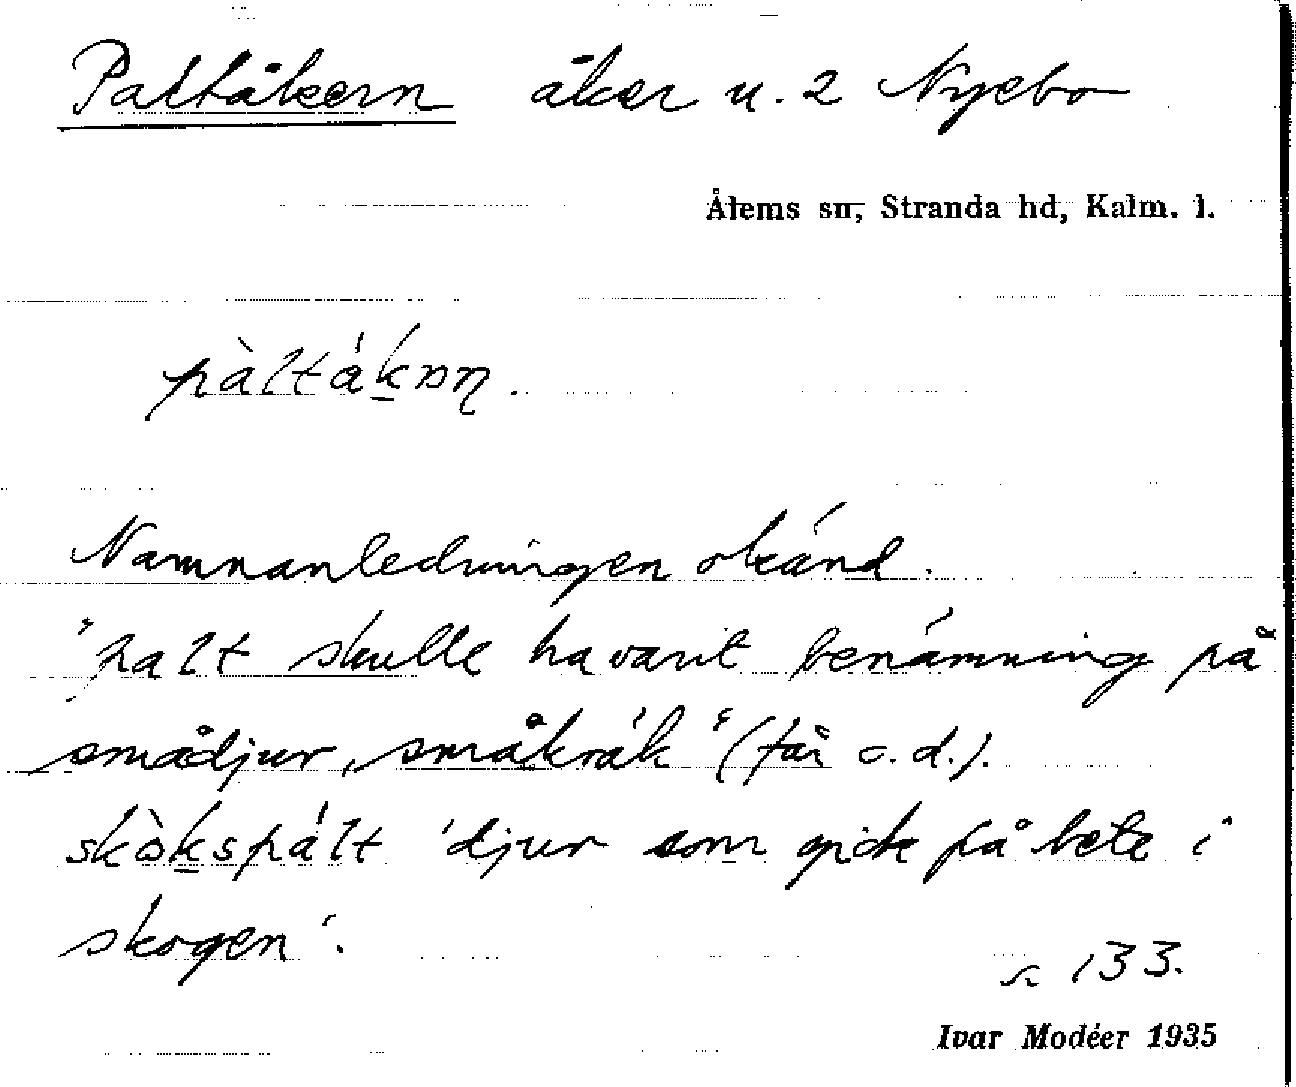 Paltåkern åker u. 2 Nyebo
Ålems sn, Stranda hd, Kalm. l.
pàltákɒn.
Namnanledningen okänd.
"palt skulle ha varit benämning på
smådjur, småkräk" (får o.d.).
skòkspált 'djur som gick på bete i
skogen'.
s. 133.
Ivar Modéer 1935